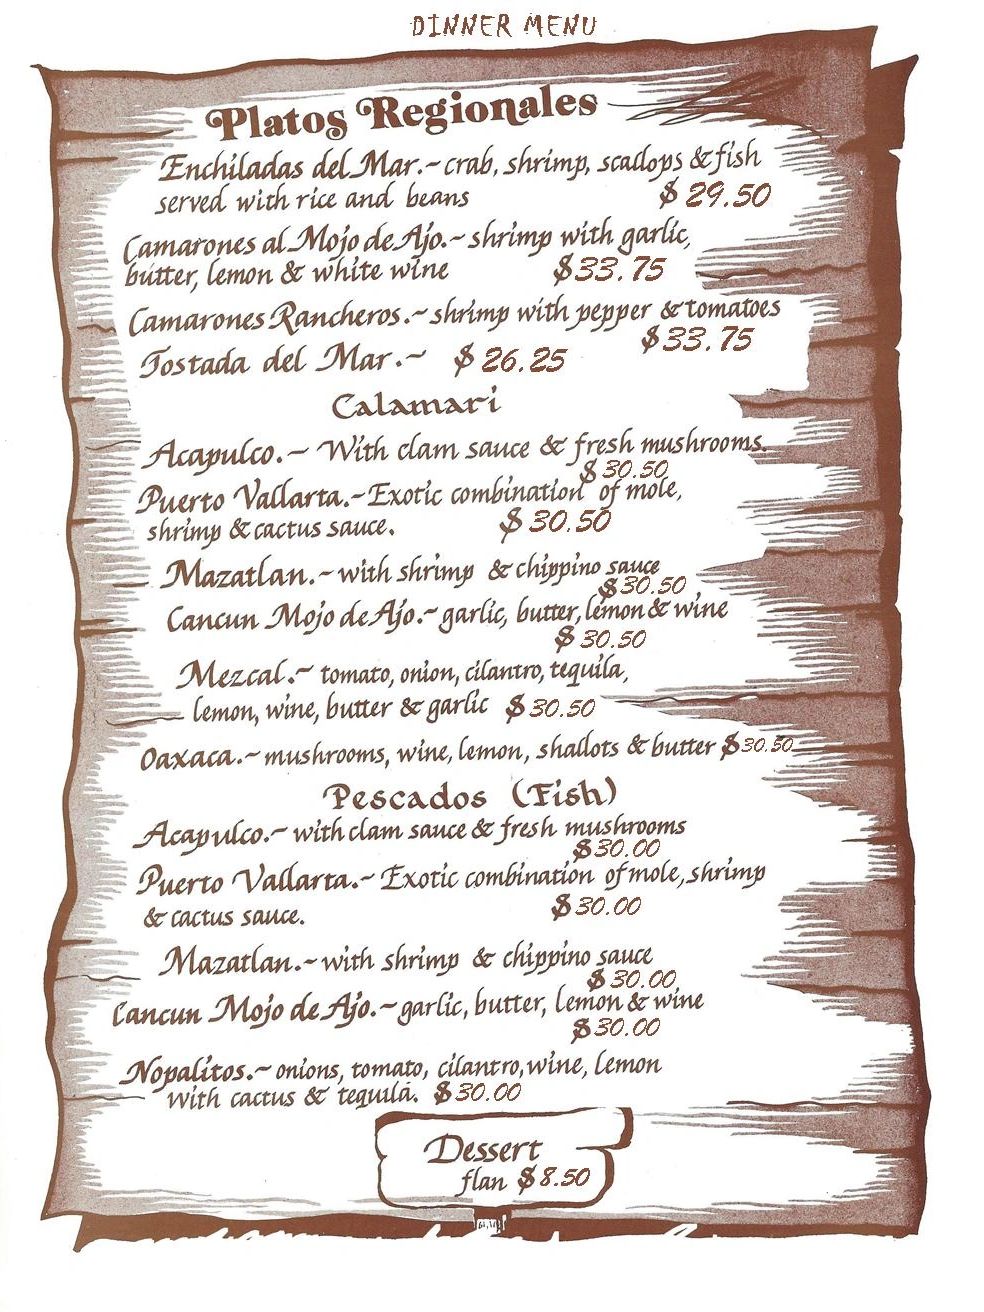 DINNER MENU
Platos Regionales
Enchiladas del Mar.~ crab, shrimp, scallops & fish
served with rice and beans $ 29.50
Camarones al Mojo de Ajo.~ shrimp with garlic,
butter, lemon & white wine $33.75
Camarones Rancheros.~ shrimp with pepper & tomatoes
$33.75
Tostada del Mar.~ $ 26.25
Calamari
Acapulco.~ With clam sauce & fresh mushrooms.
$ 30.50
Puerto Vallarta.~ Exotic combination of mole,
shrimp & cactus sauce. $ 30.50
Mazatlan.~ with shrimp & chippino sauce
$30.50
Cancun Mojo de Ajo.~ garlic, butter, lemon & wine
$ 30.50
Mezcal.~ tomato, onion, cilantro, tequila,
lemon, wine, butter & garlic $ 30.50
Oaxaca.~ mushrooms, wine, lemon, shallots & butter $30.50
Pescados (Fish)
Acapulco.~ with clam sauce & fresh mushrooms
$30.00
Puerto Vallarta.~ Exotic combination of mole, shrimp
& cactus sauce. $30.00
Mazatlan.~ with shrimp & chippino sauce
$30.00
Cancun Mojo de Ajo.~ garlic, butter, lemon & wine
$30.00
Nopalitos.~ onions, tomato, cilantro, wine, lemon
with cactus & tequila. $30.00
Dessert
flan $8.50